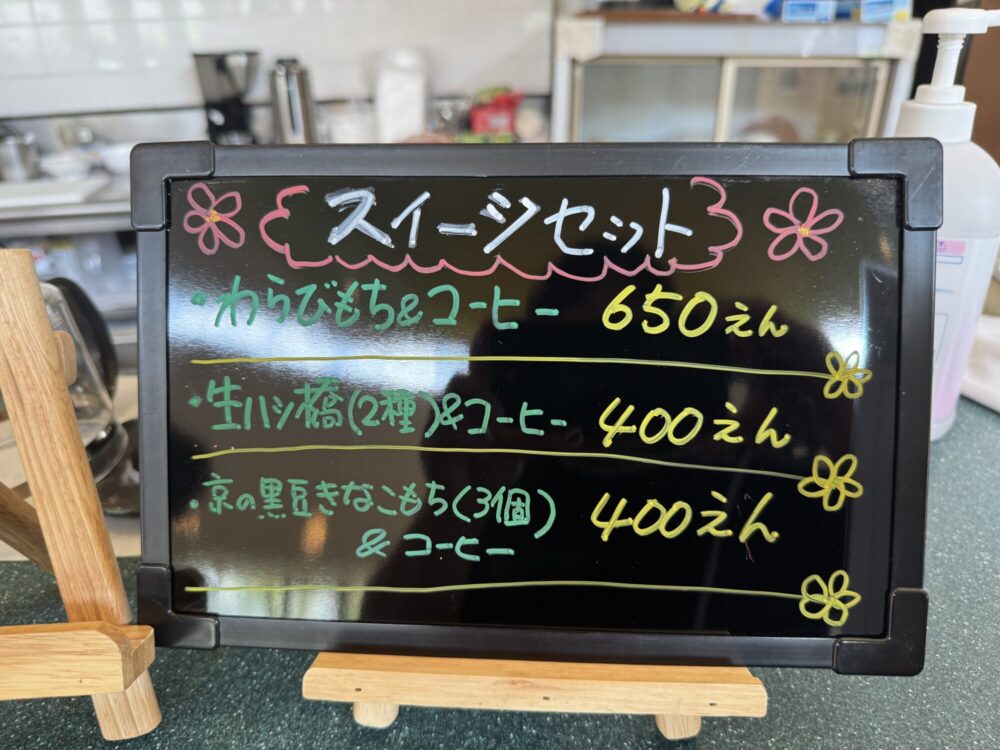 スイーツセット
・わらびもち&コーヒー 650えん
・生ハシ橋(2種)&コーヒー 400えん
・京の黒豆きなこもち(3個) 400えん
& コーヒー